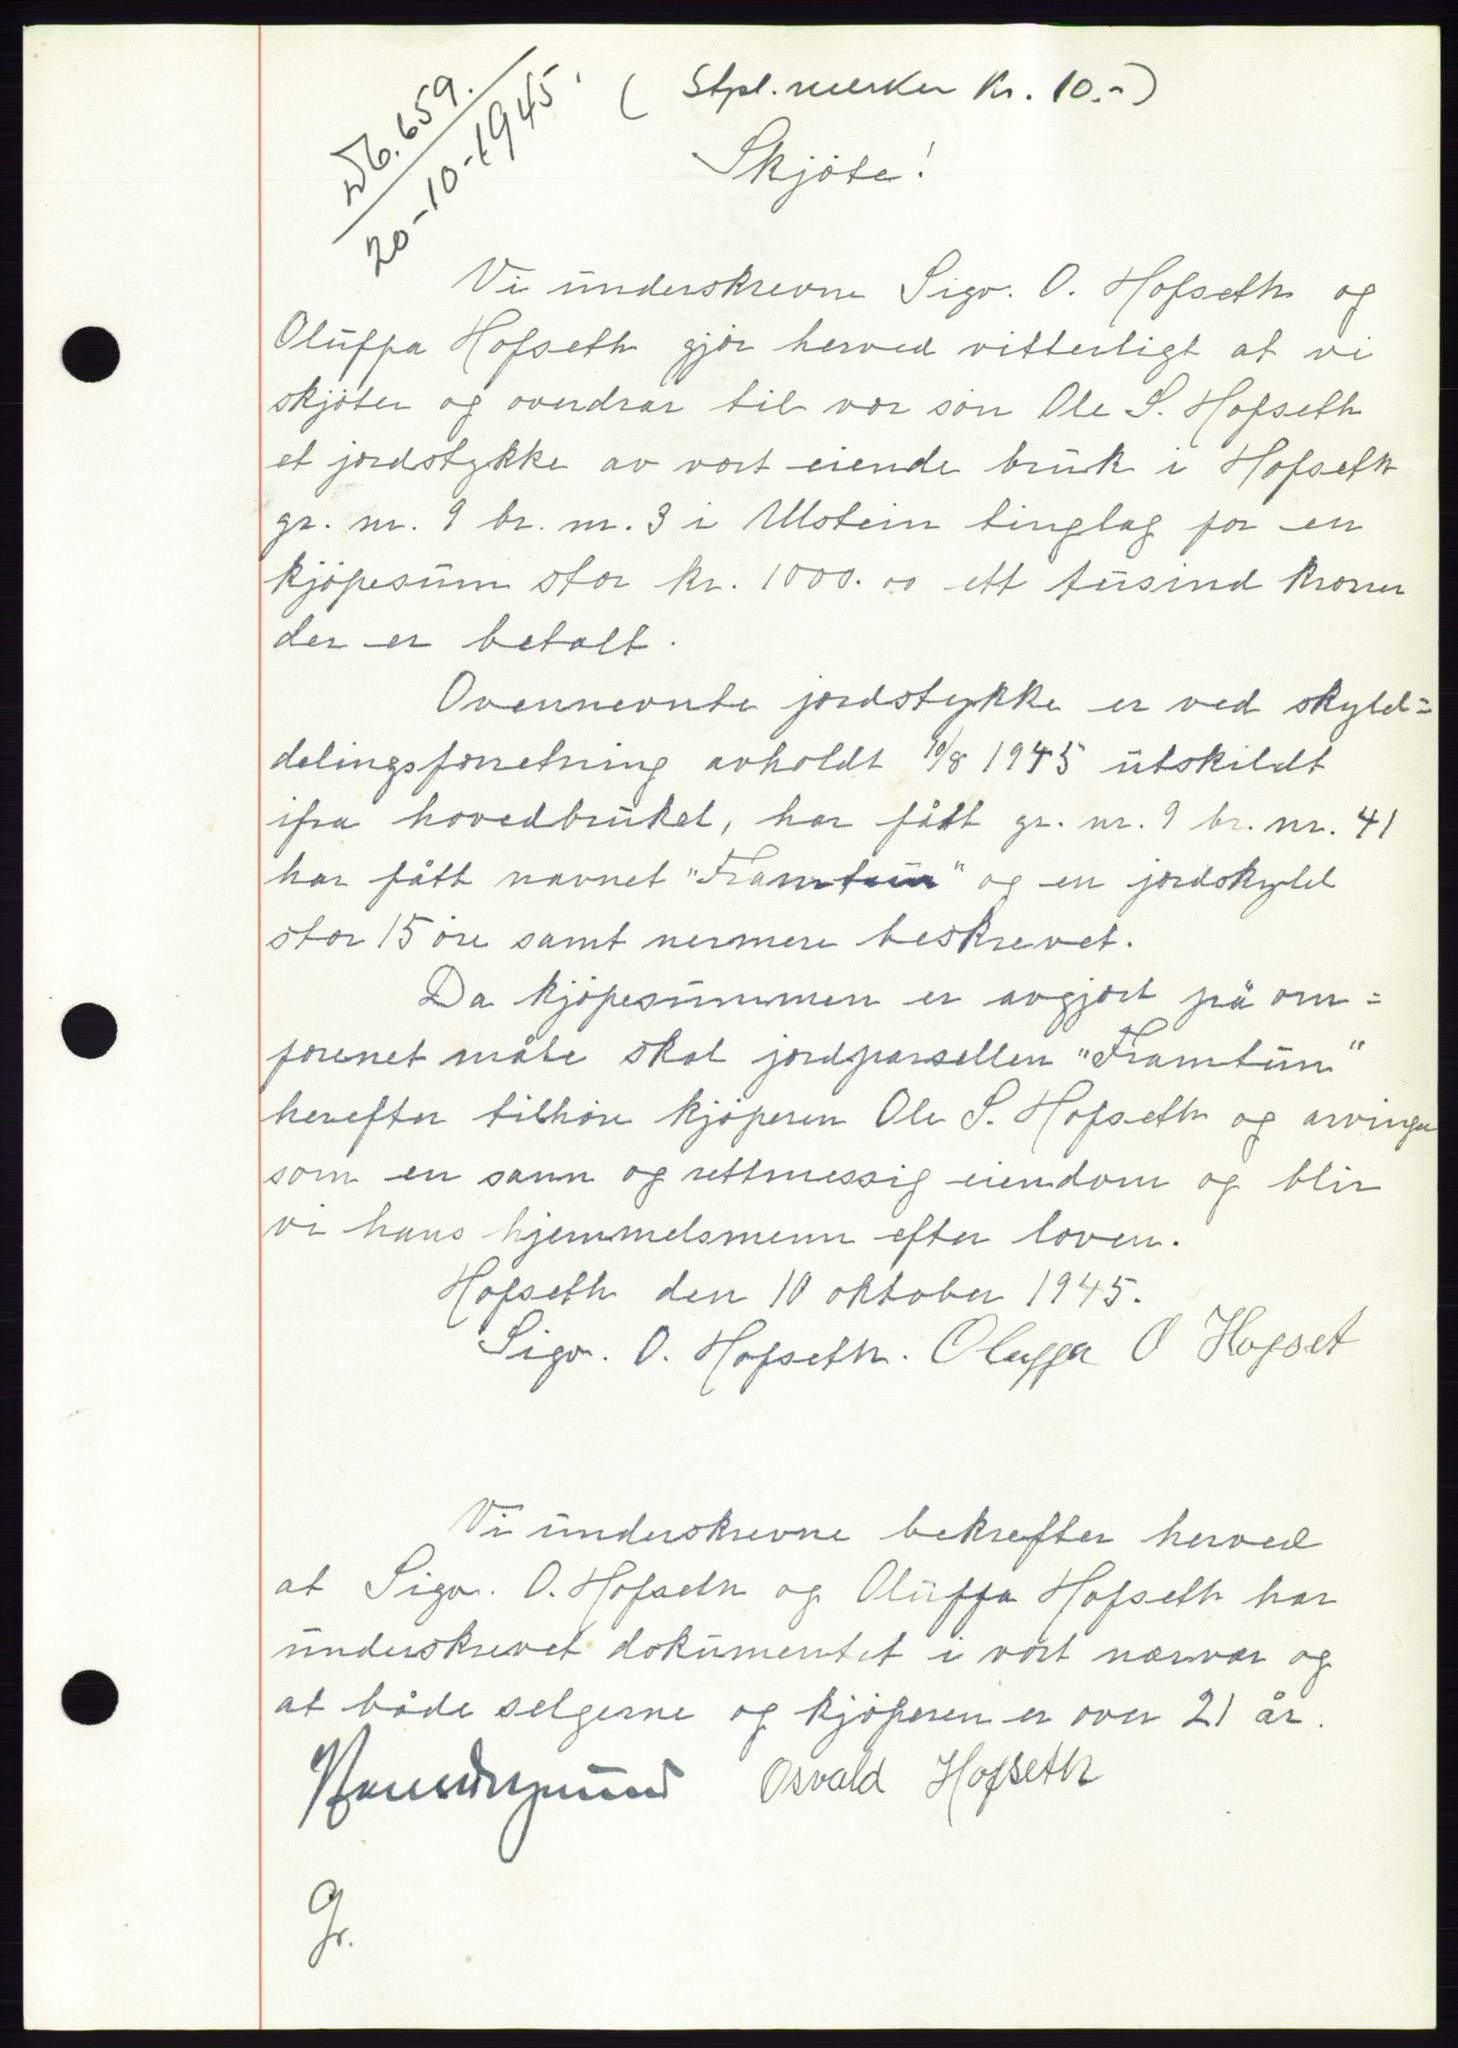 Db. 659.
20-10-1945.
( Stpl. merker Kr. 10.-)
Skjöte!
Vi underskrevne Sigv. O. Hofseth og
Oluffa Hofseth gjör herved vitterligt at vi
skjöter og overdrar til vor sön Ole S. Hofseth
et jordstykke av vort eiende bruk i Hofseth
gr. nr. 9 br. nr. 3 i Ulstein tinglag for en
kjöpesum stor kr. 1000.00 ett tusind kroner
der er betalt.
Ovennevnte jordstykke er ved skyld=
delingsforretning avholdt 10/8 1945 utskildt
ifra hovedbruket, har fått gr. nr. 9 br. nr. 41
har fått navnet "Framtun" og en jordskyld
stor 15 öre samt nermere beskrevet.
Da kjöpesummen er avgjort på om=
forenet måte skal jordparsellen "Framtun"
herefter tilhöre kjöperen Ole S. Hofseth og arvinger
som en sann og rettmessig eiendom og blir
vi hans hjemmelsmenn efter loven.
Hofseth den 10 oktober 1945.
Sigv. O. Hofseth. Oluffa O Hofset
Vi underskrevne bekrefter herved
at Sigv. O. Hofseth og Oluffa Hofseth har
underskrevet dokumentet i vört nærvær og
at både selgerne og kjöperen er over 21 år.
Osvald Hofseth
Gr.